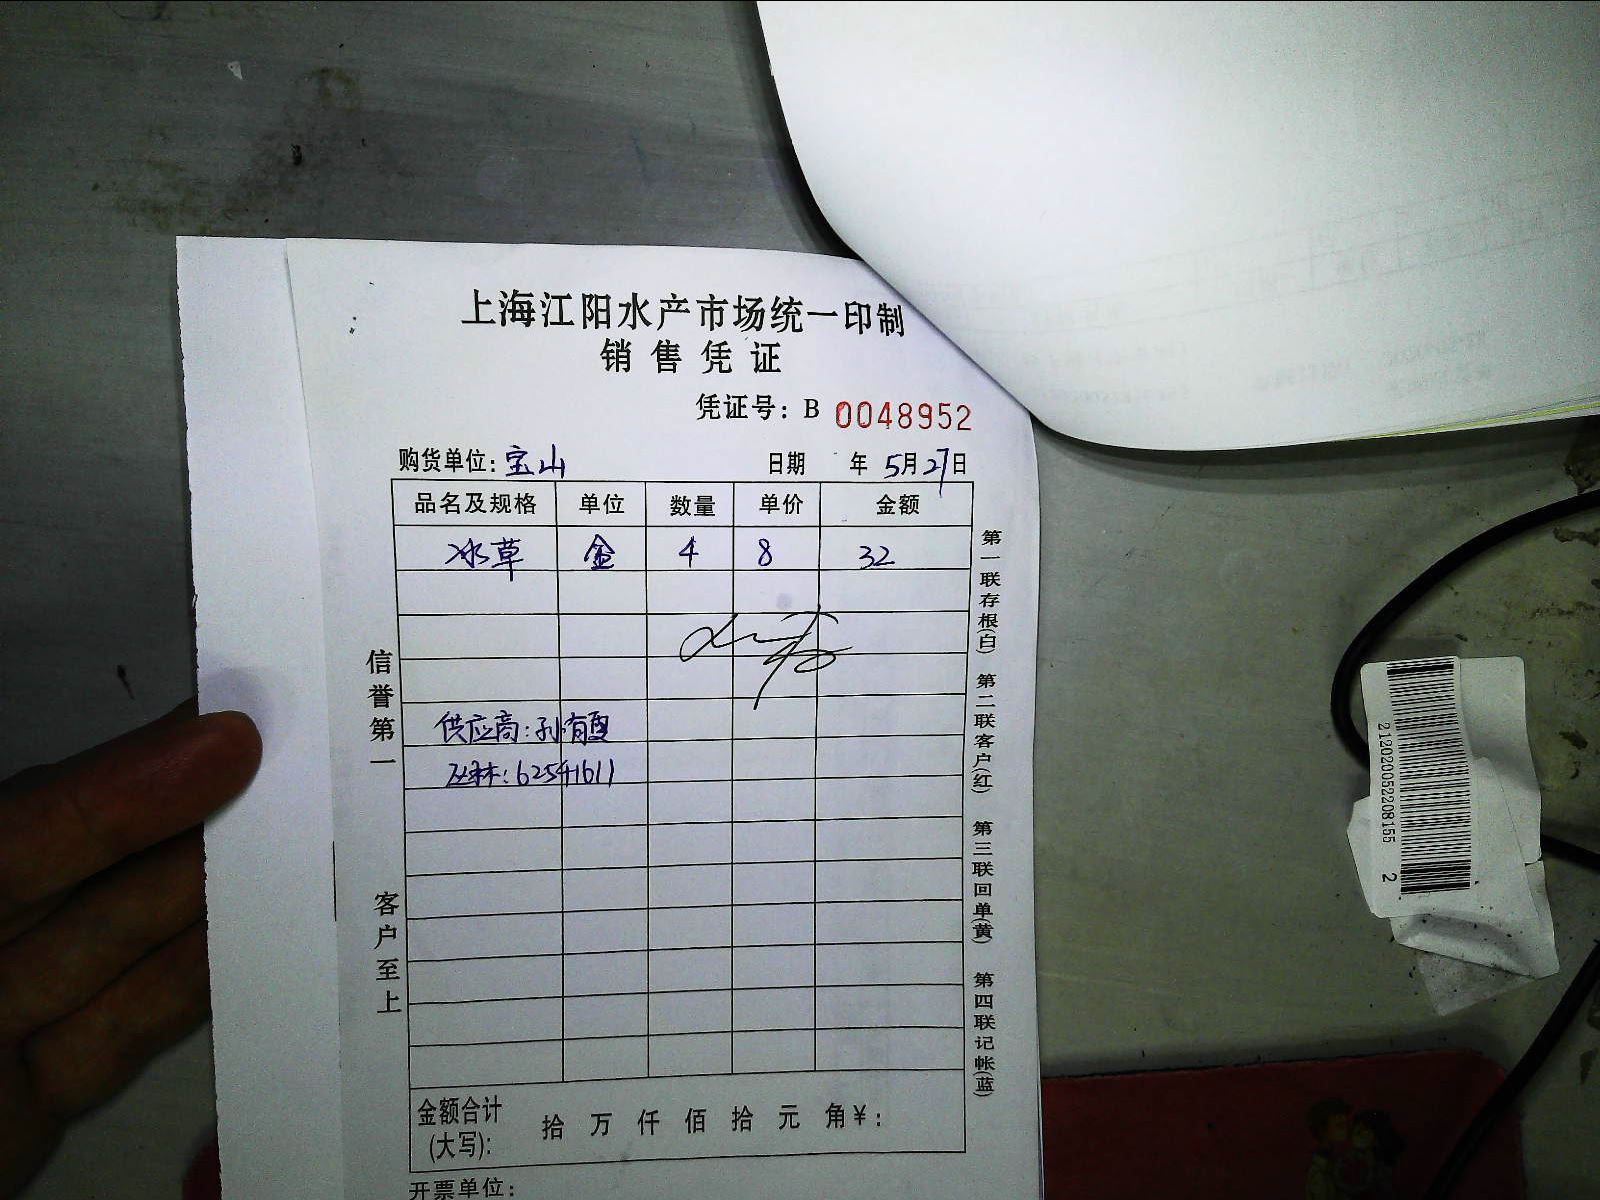 上海江阳水产市场统一印制
销售凭证
凭证号：B 0048952
购货单位：宝山 日期 年 5月27日
品名及规格 单位 数量 单价 金额
冰草 盒 4 8 32
供应商：孙有
：62541611
信誉第一
客户至上
第一联存根(白) 第二联客户(红) 第三联回单(黄) 第四联记帐(蓝)
金额合计(大写)： 拾 万 仟 佰 拾 元 角￥：
开票单位：
2120200522208155 2